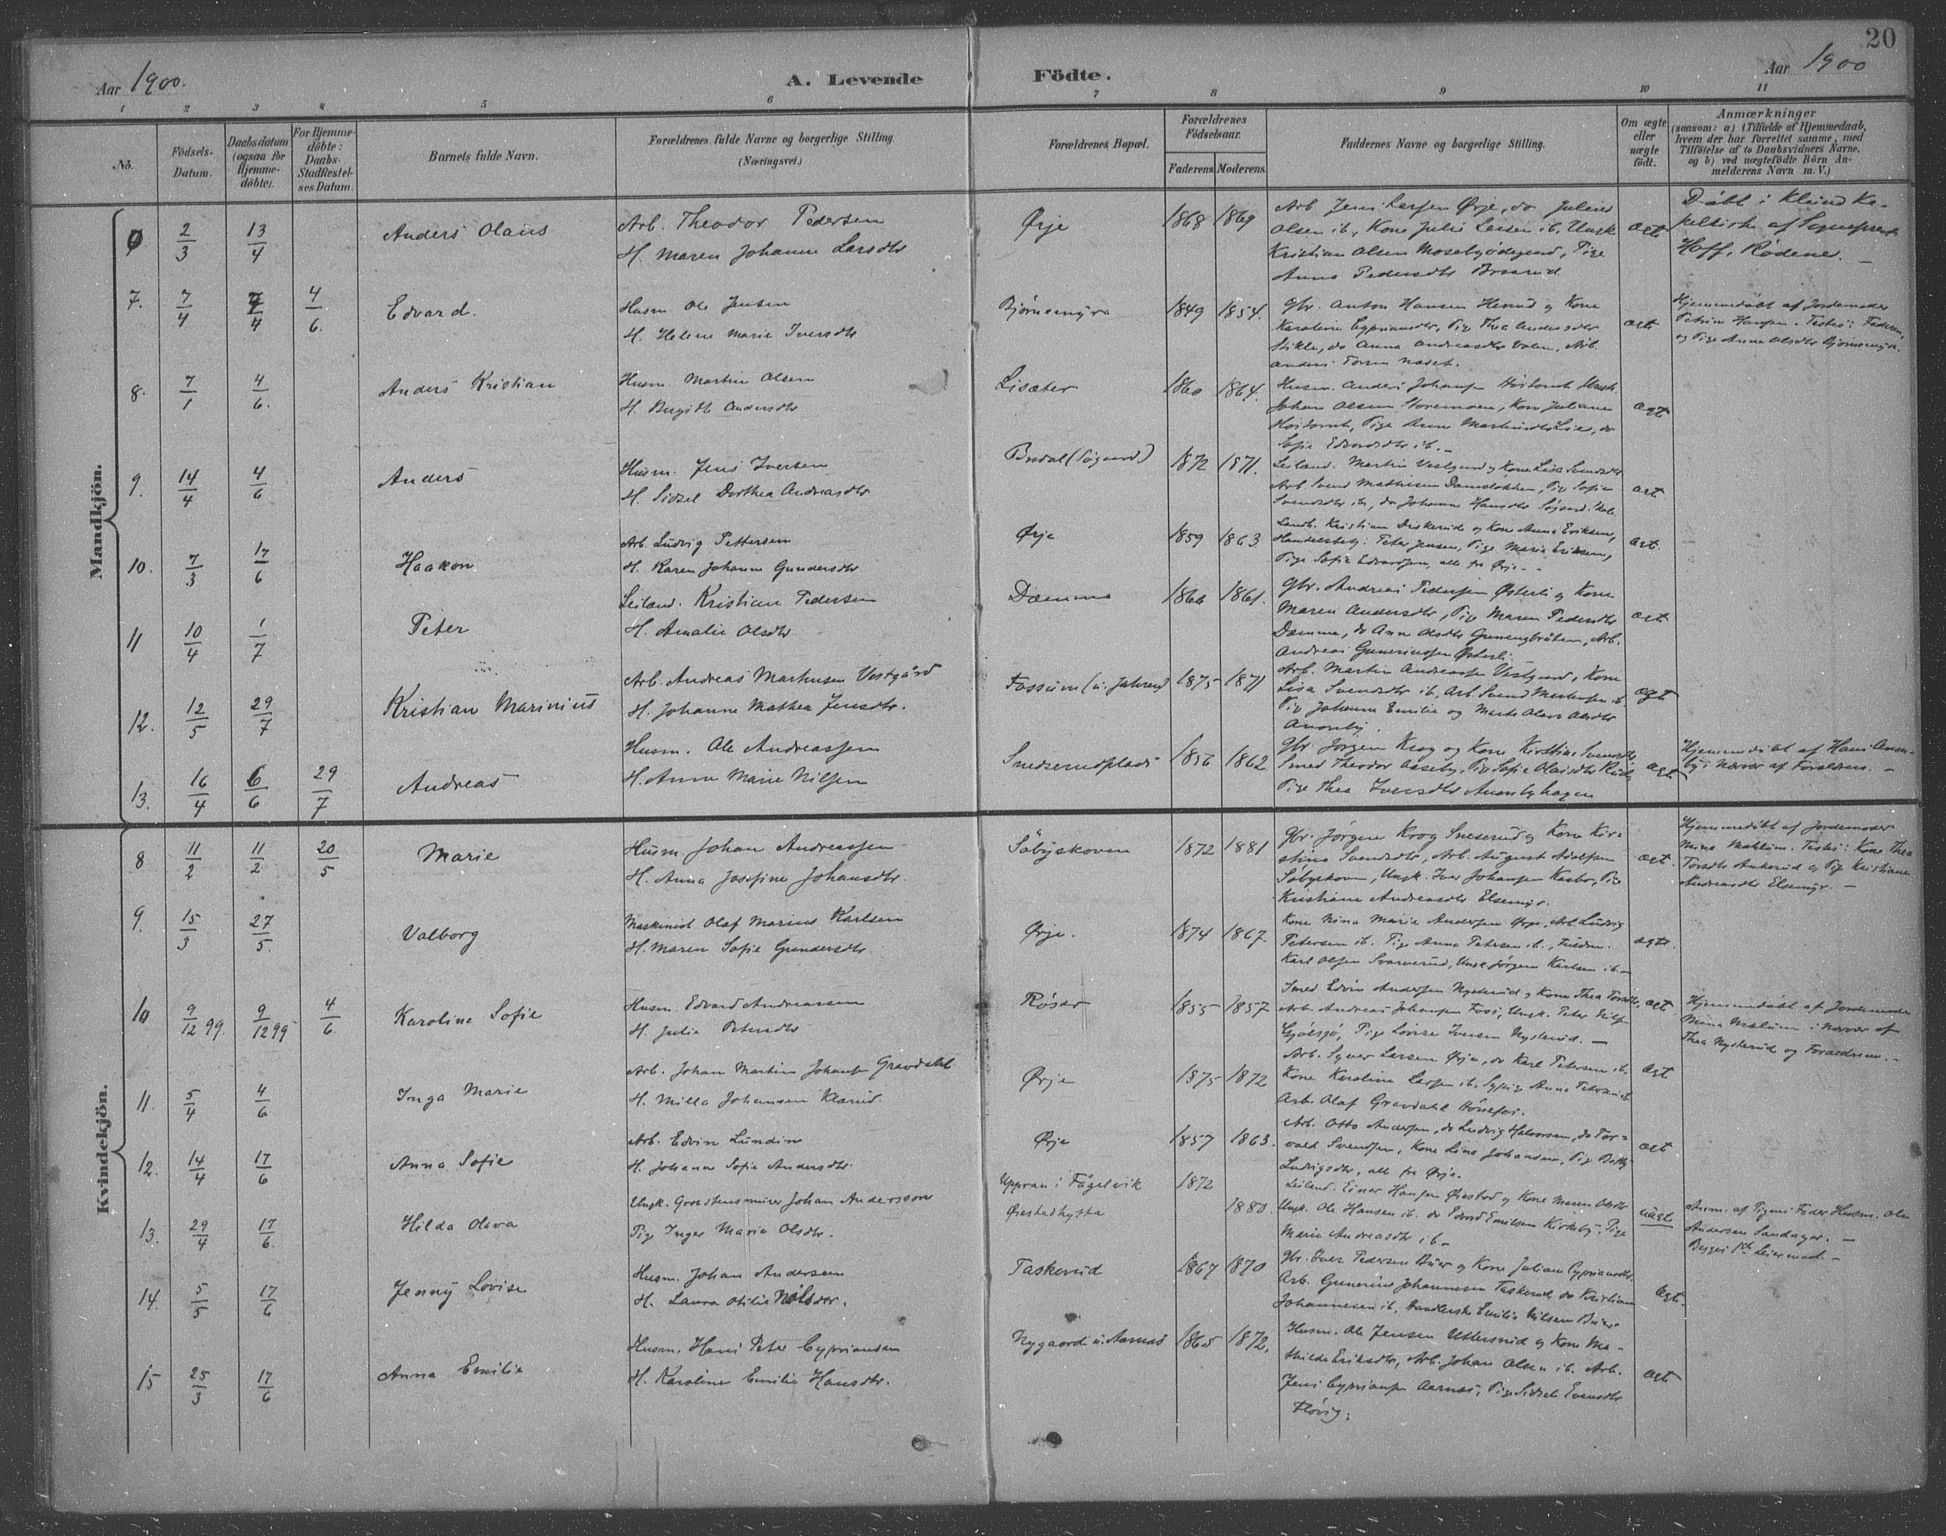 20
Aar 1900.
A. Levende
Födte.
Aar 1900
1 2 3 4 5 6 7 8 9 10 11
No.
Födsels-Datum.
Daabsdatum (ogsaa for Hjemmedöbte).
For Hjemmedöbte: Daabs-Stadfæstelses Datum.
Barnets fulde Navn.
Forældrenes fulde Navne og borgerlige Stilling (Næringsvei.)
Forældrenes Bopæl.
Forældrenes Födselsaar.
Faderens. Moderens.
Faddernes Navne og borgerlige Stilling.
Om ægte eller uægte födt.
Anmærkninger
(saasom: a) i Tilfælde af Hjemmedaab, hvem der har forrettet samme, med Tilföielse af to Daabsvidners Navne, og b) ved uægtefödte Börn Anmelderens Navn m. V.)
Mandkjön.
2/3 13/4 Anders Olaus
Arb. Theodor Pedersen
H. Maren Johanne Larsdtr
Ørje 1868 1869
Arb. Jens Larsen Ørje, do Julius
Olsen ib, Kone Julie Larsen ib, Ungk
Kristian Olsen Mosebyødegaard, Pige
Anna Pedersdtr
ægte
Døbt i Klund Ka-
pelkirke af Sogneprest
Hoff, Rødenes. —
7. 7/4 7/4 4/6. Edvard.
Husm. Ole Jensen
H. Helene Marie Iversdtr
Bjørnemyr 1849 1854.
Gbr. Anton Hansen og Kone
Karoline Cypriansdtr, Pige Thea Andersdtr
Stikle, do Anna Andreasdtr Arb.
Anders
ægt.
Hjemmedøbt af Jordemoder
Petrine Hansen. Testes: Faderen,
og Pige Anne Olsdtr Bjørnemyr.
8. 7/1 4/6. Anders Kristian
Husm. Martin Olsen
H. Birgith Andersdtr
Lisæter 1860 1864.
Husm. Anders Johansen
Johan Olsen Storemoen, Kone Juliane
Pige Anne
Sofie Edvardsdtr ib. —
ægt
9. 14/4 4/6 Anders
Husm. Jens Iversen
H. Sidsel Dorthea Andreasdtr
Brudal (Søgaard) 1872 1871.
Leiland. Martin Vestgaard og Kone Lisa Svendsdtr
Arb Svend Mathisen Pige Sofie
Svendsdtr ib, do Johanne Hansdtr
ægt
10. 7/3 17/6 Haakon
Arb. Ludvig Pettersen
H. Karen Johanne Gundersdtr
Ørje 1859 1863
Landh. Kristian Diskerud og Kone Anna Eriksen,
Handelsbetj. Peter Jensen, Pige Marie Eriksen,
Pige Sofie Edvardsen, alle fra Ørje. —
ægt.
11 10/4 1/7 Peter
Leiland. Kristian Pedersen
H. Amalie Olsdtr
Dæmma 1866 1861.
Gbr. Andreas Pedersen Østerli og Kone
Maren Andersdtr, Pige Maren Pedersdtr
Dæmma, do Ann Olsdtr Arb.
Andreas Gunerius­sen Østerli.
ægt
12. 12/5 29/7 Kristian Marinius
Arb. Andreas Martinsen Vestgård
H. Johanne Mathea Jensdtr.
Fossum 1875 1871
Arb. Martin Andreassen Vestgaard, Kone
Lisa Svendsdtr ib, Arb. Svend
Pig Johanne Emilie og Marte Olava Olsdtr
ægt
13. 16/4 6/6 29/7 Andreas
Husm. Ole Andreassen
H. Anne Marie Nilsen
1856 1862
Gbr. Jørgen Krog og Kone Kirstine Svendsdtr
Smed Theodor Pig Sofie
Pige Thea Iversdtr
ægt
Hjemmedøbt af Hans
i Nærvær af Forældrene. —
Kvindekjön.
8 11/2 11/2 20/5 Marie
Husm Johan Andreassen
H. Anna Josefine Johansdtr.
Søbyskoven 1872 1881
Gbr. Jørgen Krog Sneserud og Kone Kir-
stina Svendsdtr, Arb. August Adolfsen
Søbyskoven, Ungk. Iver Johansen Pige
Kristiane Andreasdtr Elsemyr.
ægt.
Hjemmedøbt af Jordemoder
Mina Mælum. Testes: Kone Thea
og Pige Kristiane
Andreasdtr Elsemyr. —
9. 15/3 27/5. Valborg
Maskinist Olaf Marius Karlsen
H. Maren Sofie Gundersdtr.
Ørje. 1874 1867.
Kone Nina Marie Andersen Ørje, Arb. Ludvig
Petersen ib. Pige Anna Petersen ib.,
Karl Olsen Ungk. Jørgen Karlsen ib. —
ægte.
10 9/12 99. 9/12 99 4/6. Karoline Sofie
Husm. Edvard Andreassen
H. Julie Petersdtr
Røser 1855 1857
Smed Edvin Andersen Nysterud og Kone Thea
Arb. Andreas Johansen Foss, Ungk. Peter
Gjølsjø, Pige Lovise Iversen Nysterud. —
ægt
Hjemmedøbt af Jordemoder
Mina Mælum i Nærvær af
Thea Nysterud og Forældrene. —
11. 5/4 4/6 Inga Marie
Arb. Johan Martin Johansen Gravdahl
H. Milla Johansen
Ørje 1875 1872
Arb. Syver Larsen Ørje, do Karl Petersen ib,
Kone Karoline Larsen ib, Anne
Arb. Olaf Gravdahl Hönefos.
ægt
12. 14/4 17/6 Anna Sofie
Arb. Edvin Lundin
H. Johanne Sofie Andersdtr.
Ørje 1857 1863.
Arb. Otto Andersen, do Ludvig Halvorsen, do Tor-
vald Svendsen, Kone Lina Johansen, Pig
Ludvigsdtr, alle fra Ørje.
ægt
13. 29/4 17/6. Hilda Olava
Ungk. Johan Andersson
Pig. Inger Marie Olsdtr.
Uppran i Fågelvik 1872
Ørestadhytta 1880.
Leiland. Einar Hansen Ørestad og Kone Maren Olsdtr
Ungk. Ole Hansen ib. do Edvard Emilsen Kirkeby, Pige
Marie Andreasdtr ib —
uægte
Anm. af Pigens Fader Husm. Ole
Andersen Sandager. —
Begges 1ste Leiermaal. —
14. 5/5 17/6 Jenny Lovise
Husm. Johan Andersen
H. Laura Otilie Nilsdtr.
Taskerud 1867 1870
Gbr. Iver Pedersen Buer og Kone Juliane Cypriansdtr
Arb. Gunerius Johannesen Taskerud, do Kristian
Johannesen ib, Emilie Nilsen Buer.
ægt.
15 25/3 17/6 Anna Emilie
Husm. Hans Peter Cypriansen
H. Karoline Emilie Hansdtr.
Nygaard u. Aarnæs 1865 1872.
Husm. Ole Jensen og Kone Ma-
thilde Eriksdtr, Arb. Johan Olsen ib. Arb.
Jens Cypriansen Aarnæs, Pige Sidsel Evensdtr
Fløvig.
ægt